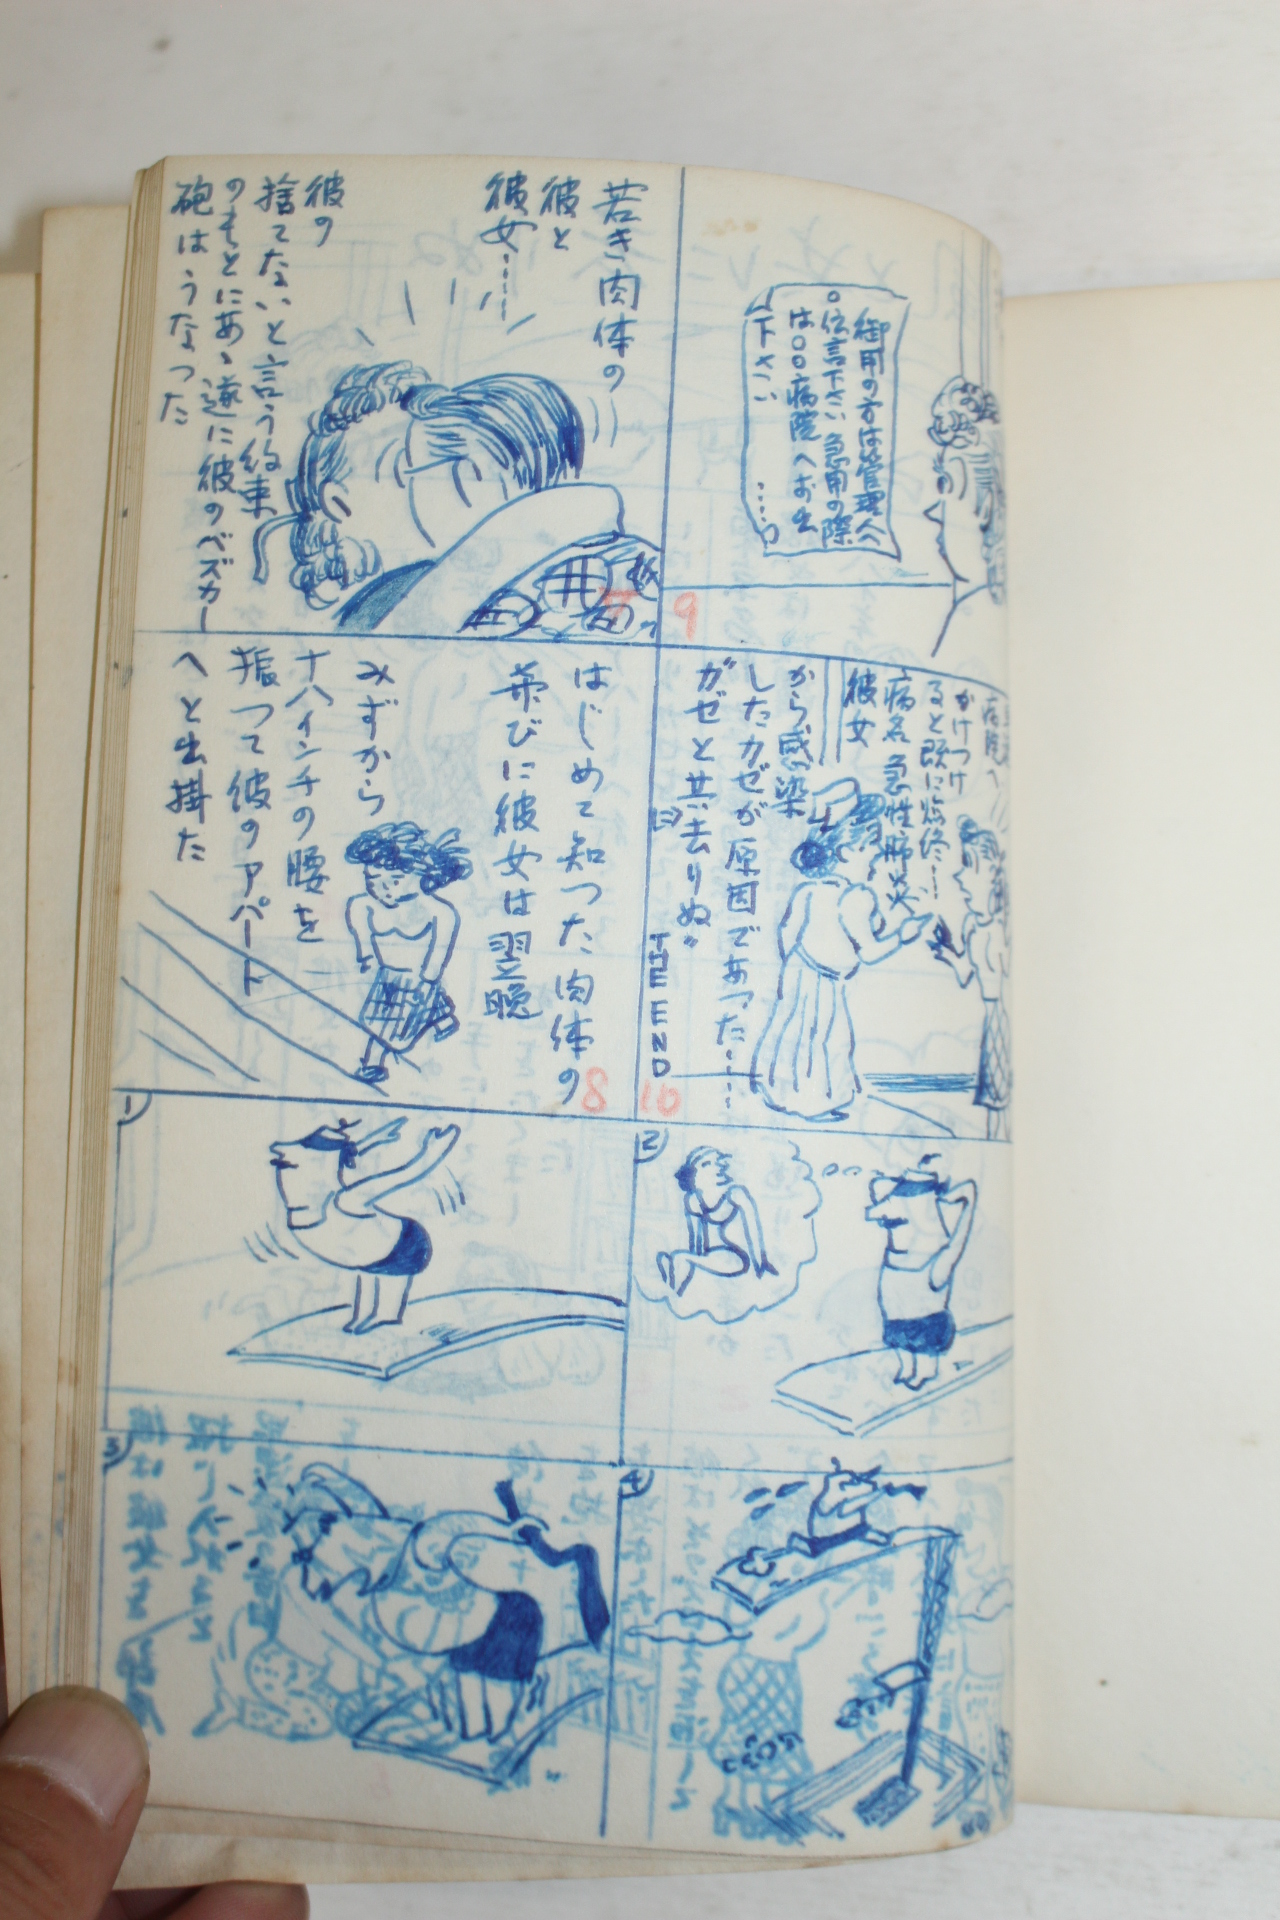 若き肉体の
彼と
彼女……
彼の
捨てないと言う約束
のもとにあゝ遂に彼のバズカー
砲はうなった
7
はじめて知つた肉体の
喜びに彼女は翌晩
みずから
十八インチの腰を
振つて彼のアパート
へと出掛た
8
御用の方は管理人へ
伝言下さい 急用の際
は〇〇病院へお出
下さい
……
9
病院へ
かけつけ
ると既に臨終……
病名 急性肺炎
彼女
から感染
したカゼが原因であつた……
"ガゼと共に去りぬ"
THE END
10
1
2
3
4